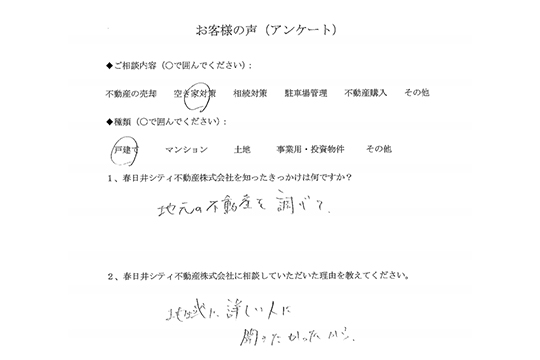 お客様の声（アンケート）
◆ご相談内容（○で囲んでください）:
不動産の売却 空き家対策 相続対策 駐車場管理 不動産購入 その他
◆種類（○で囲んでください）:
戸建て マンション 土地 事業用・投資物件 その他
1、春日井シティ不動産株式会社を知ったきっかけは何ですか？
地元の不動産を調べて。
2、春日井シティ不動産株式会社に相談していただいた理由を教えてください。
地域に詳しい人に
聞きたかったから。